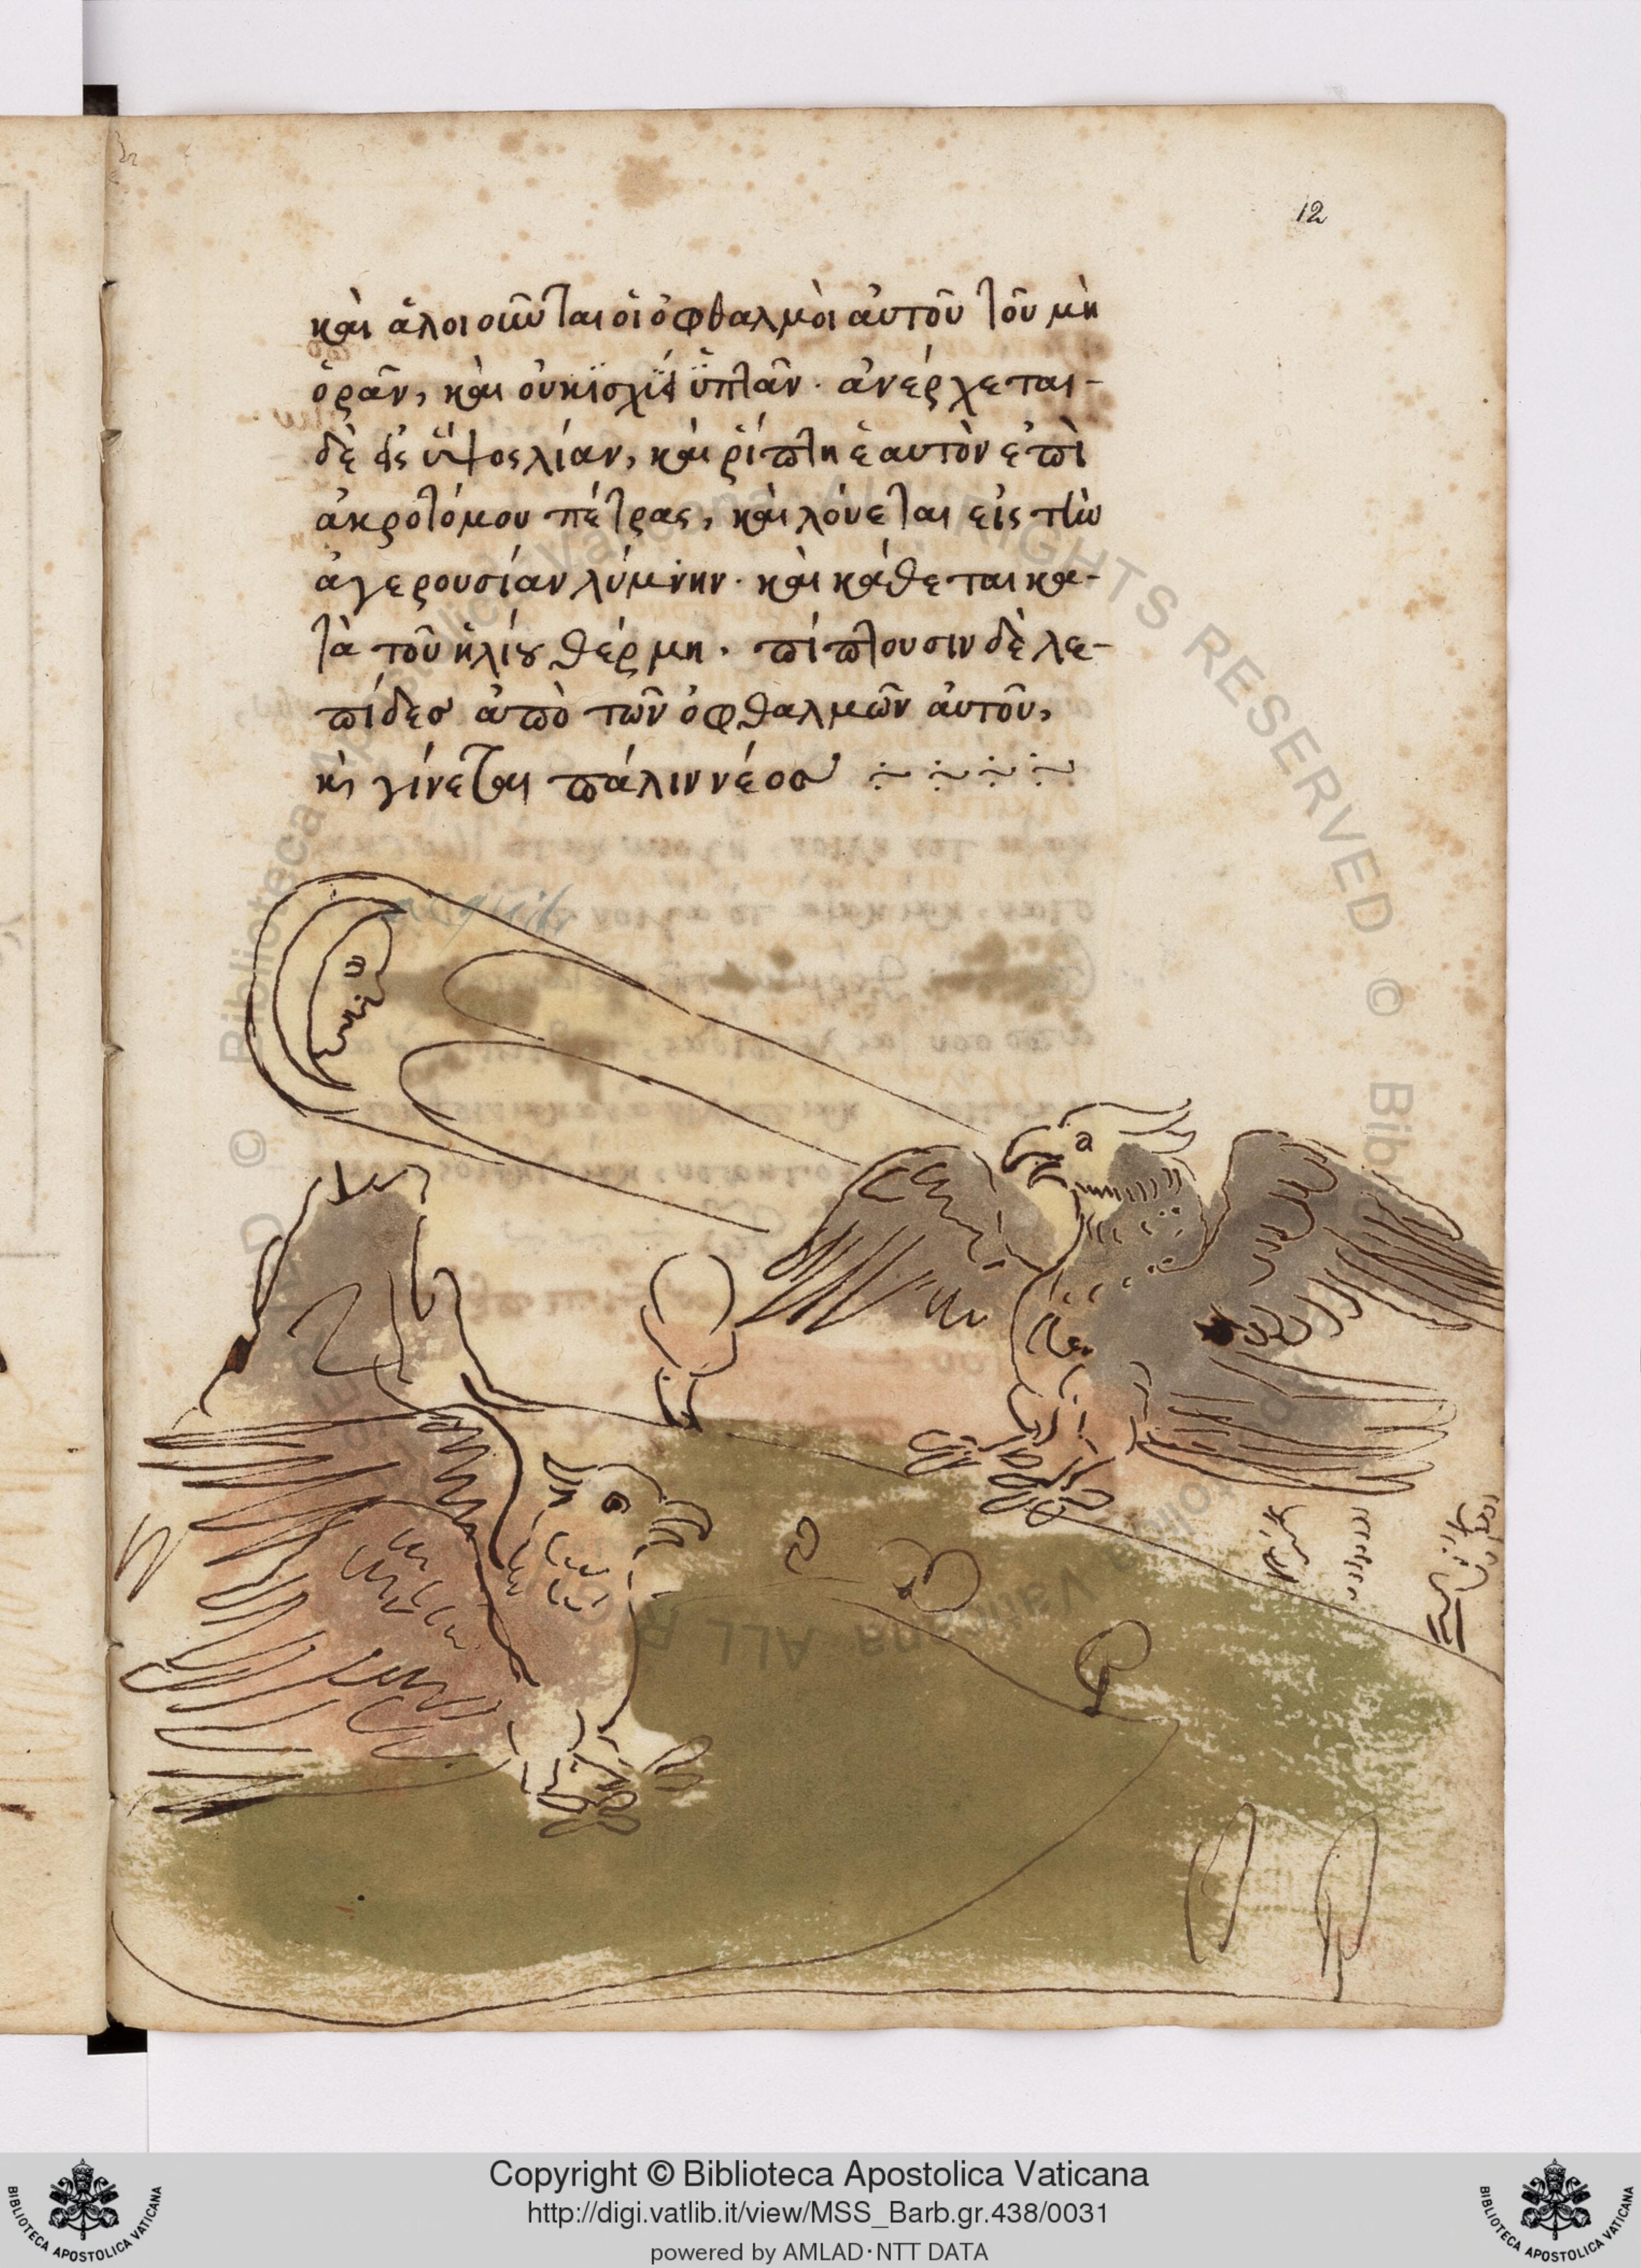 12
καὶ ἀλοιοῦνται ὁι ὀφθαλμὸι ἀυτοῦ τοῦ μὴ
ὁρᾶν, καὶ ὀυκ ϊσχύει ϋπτᾶν· ἀνέρχεται-
δὲ εἰς ὕψος λίαν, καὶ ῥίπτη ἑαυτὸν ἐπὶ
ἀκροτόμου πέτρας, καὶ λόυεται εἰς τὴν
ἀγερουσίαν λύμνην· καὶ κάθεται κα-
τὰ τοῦ ἡλίου θέρμη· πίπτουσιν δὲ λε-
πίδεσ ἀπὸ τῶν ὀφθαλμῶν ἀυτοῦ,
κὶ γίνεται πάλιν νέοσ
Copyright © Biblioteca Apostolica Vaticana
http://digi.vatlib.it/view/MSS_Barb.gr.438/0031
powered by AMLAD·NTT DATA
BIBLIOTECA APOSTOLICA VATICANA
BIBLIOTECA APOSTOLICA VATICANA